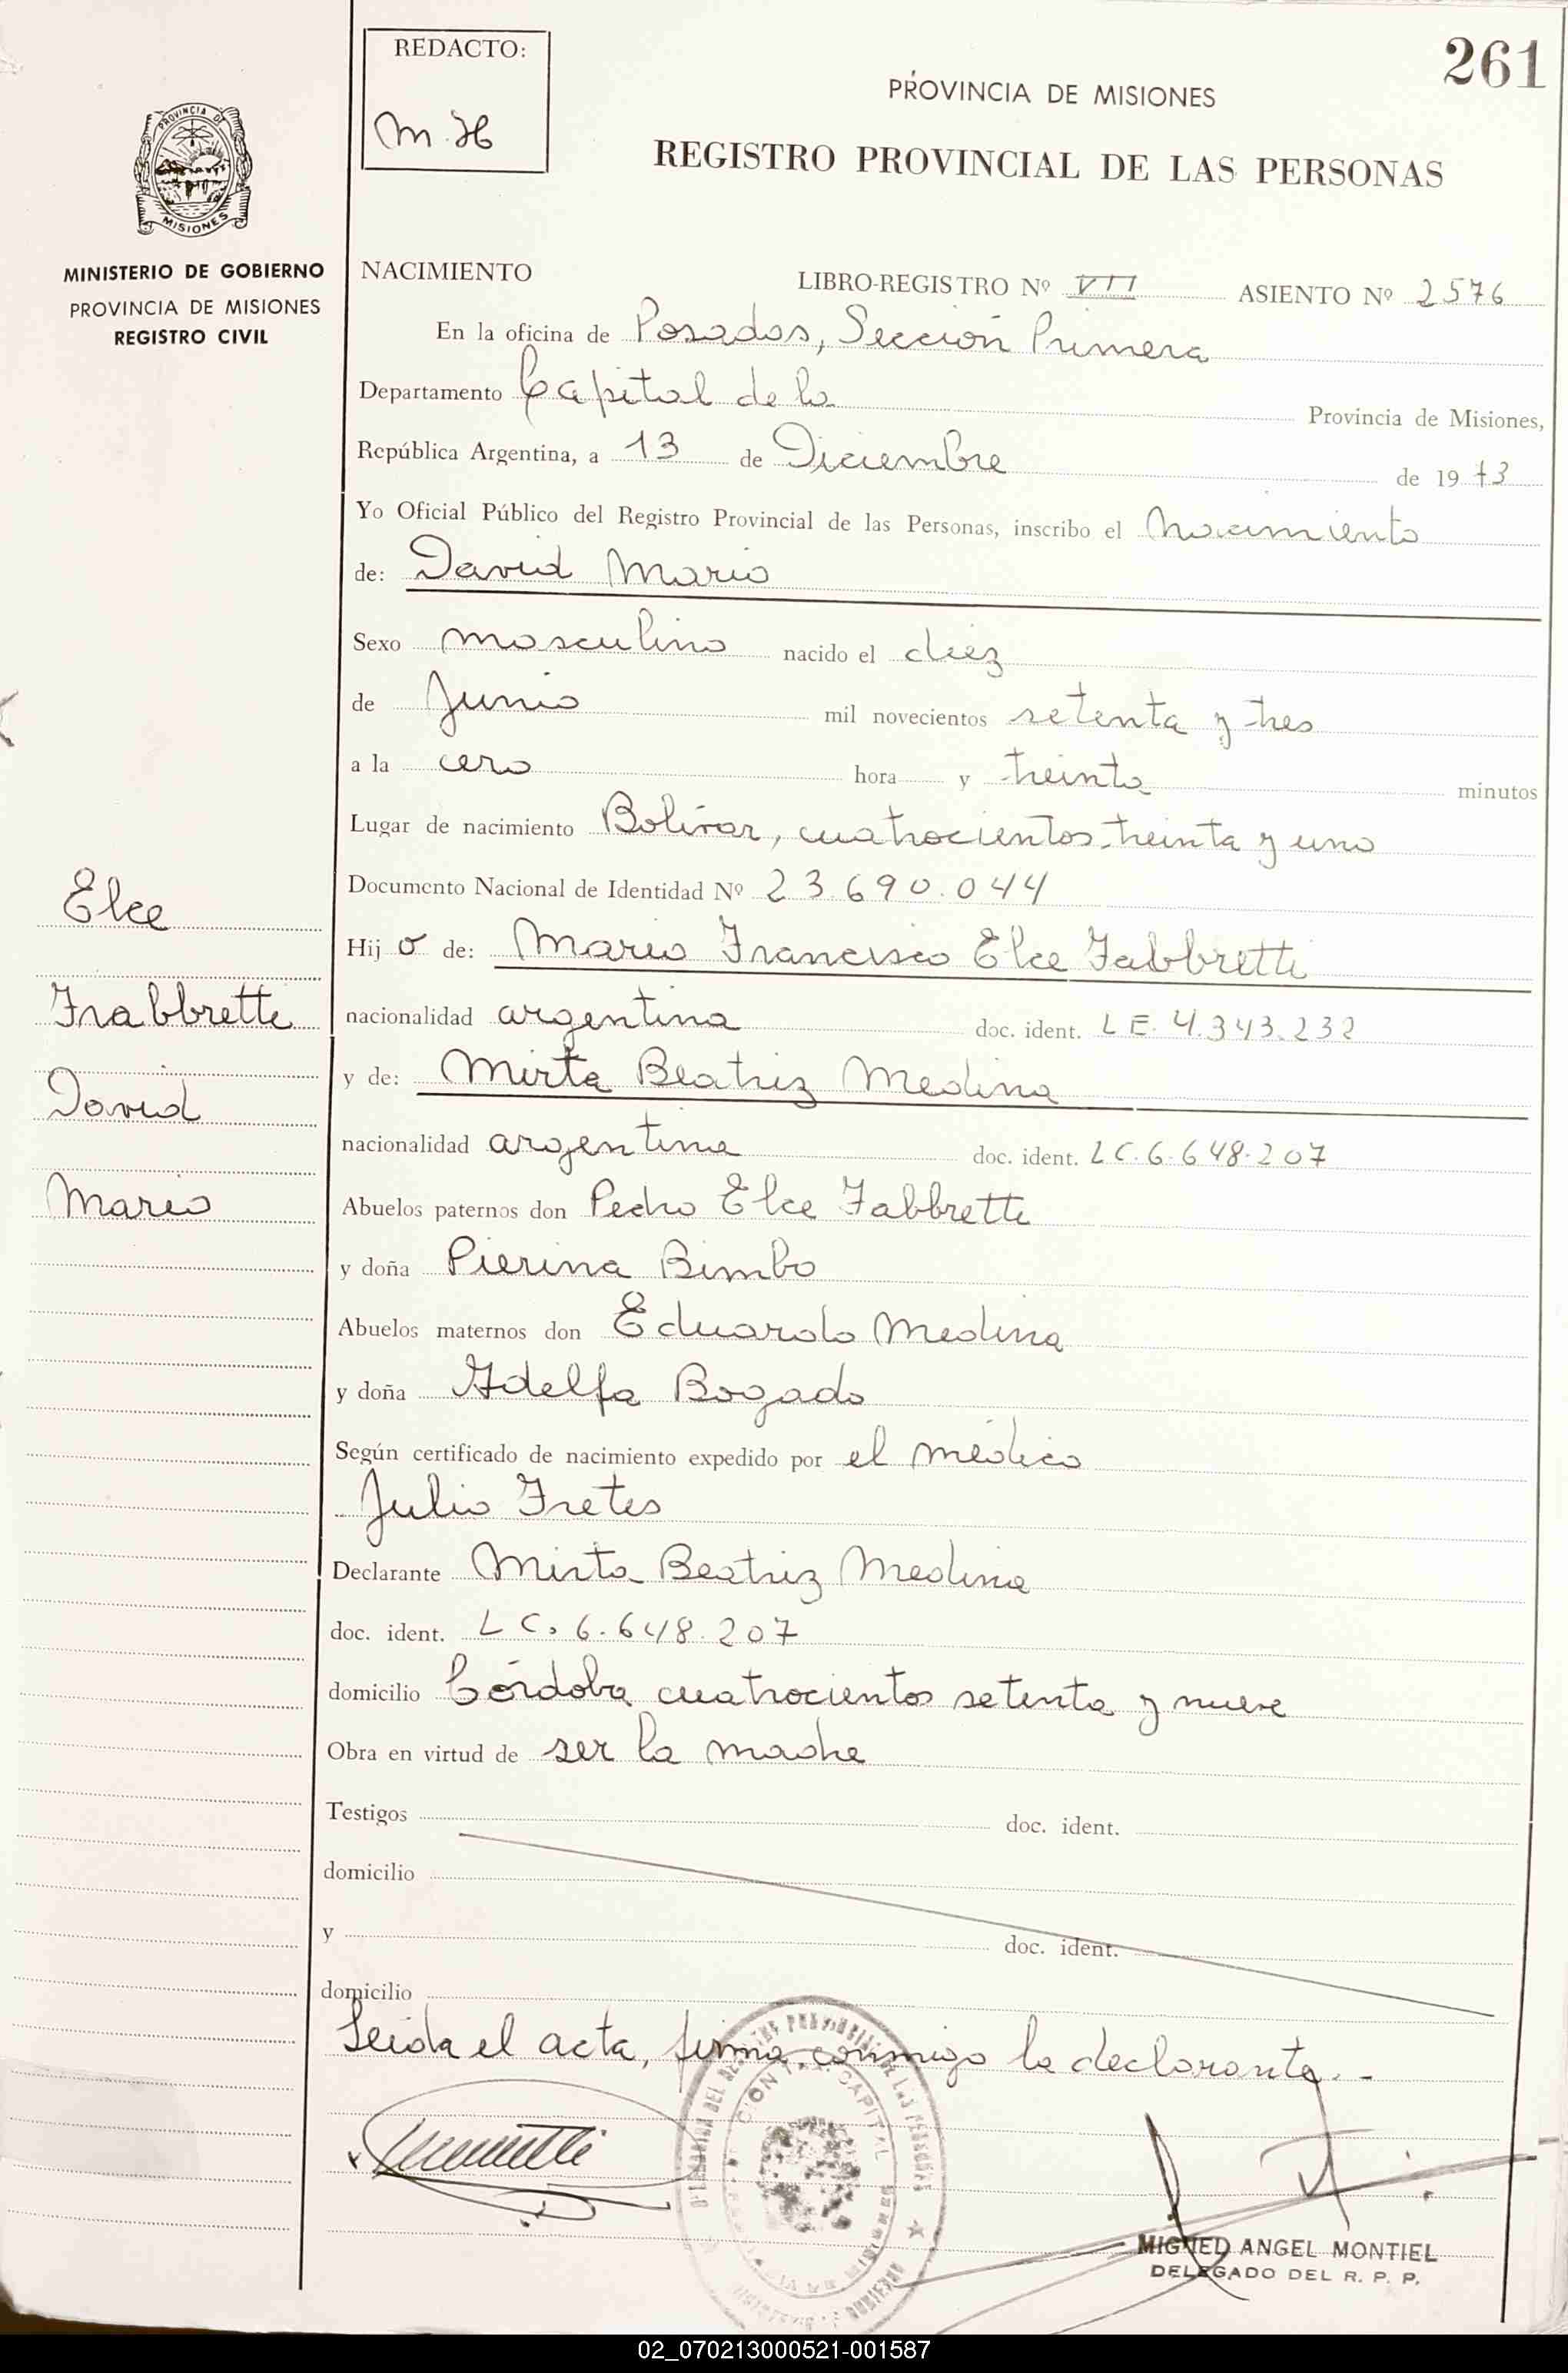 261
REDACTO:
M.H
PROVINCIA DE MISIONES
REGISTRO PROVINCIAL DE LAS PERSONAS
PROVINCIA DE
MISIONES
MINISTERIO DE GOBIERNO
PROVINCIA DE MISIONES
REGISTRO CIVIL
NACIMIENTO LIBRO-REGISTRO Nº VII ASIENTO Nº 2576
En la oficina de Posadas, Sección Primera
Departamento Capital de la Provincia de Misiones,
República Argentina, a 13 de Diciembre de 1973
Yo Oficial Público del Registro Provincial de las Personas, inscribo el Nacimiento
de: David Mario
Sexo masculino nacido el diez
de Junio mil novecientos setenta y tres
a la cero hora y treinta minutos
Lugar de nacimiento Bolívar, cuatrocientos treinta y uno
Documento Nacional de Identidad Nº 23.690.044
Hijo de: Mario Francisco Elce Fabbretti
nacionalidad argentina doc. ident. L E. 4.343.232
y de: Mirta Beatriz Medina
nacionalidad argentina doc. ident. L C. 6.648.207
Abuelos paternos don Pedro Elce Fabbretti
y doña Pierina Bimbo
Abuelos maternos don Eduardo Medina
y doña Adelfa Bogado
Según certificado de nacimiento expedido por el médico
Julio Fretes
Declarante Mirta Beatriz Medina
doc. ident. L C. 6.648.207
domicilio Córdoba cuatrocientos setenta y nueve
Obra en virtud de ser la madre
Testigos doc. ident.
domicilio
y doc. ident.
domicilio
Leida el acta, firma conmigo la declarante.-
Elce
Frabbretti
David
Mario
MIGUEL ANGEL MONTIEL
DELEGADO DEL R. P. P.
02_070213000521-001587